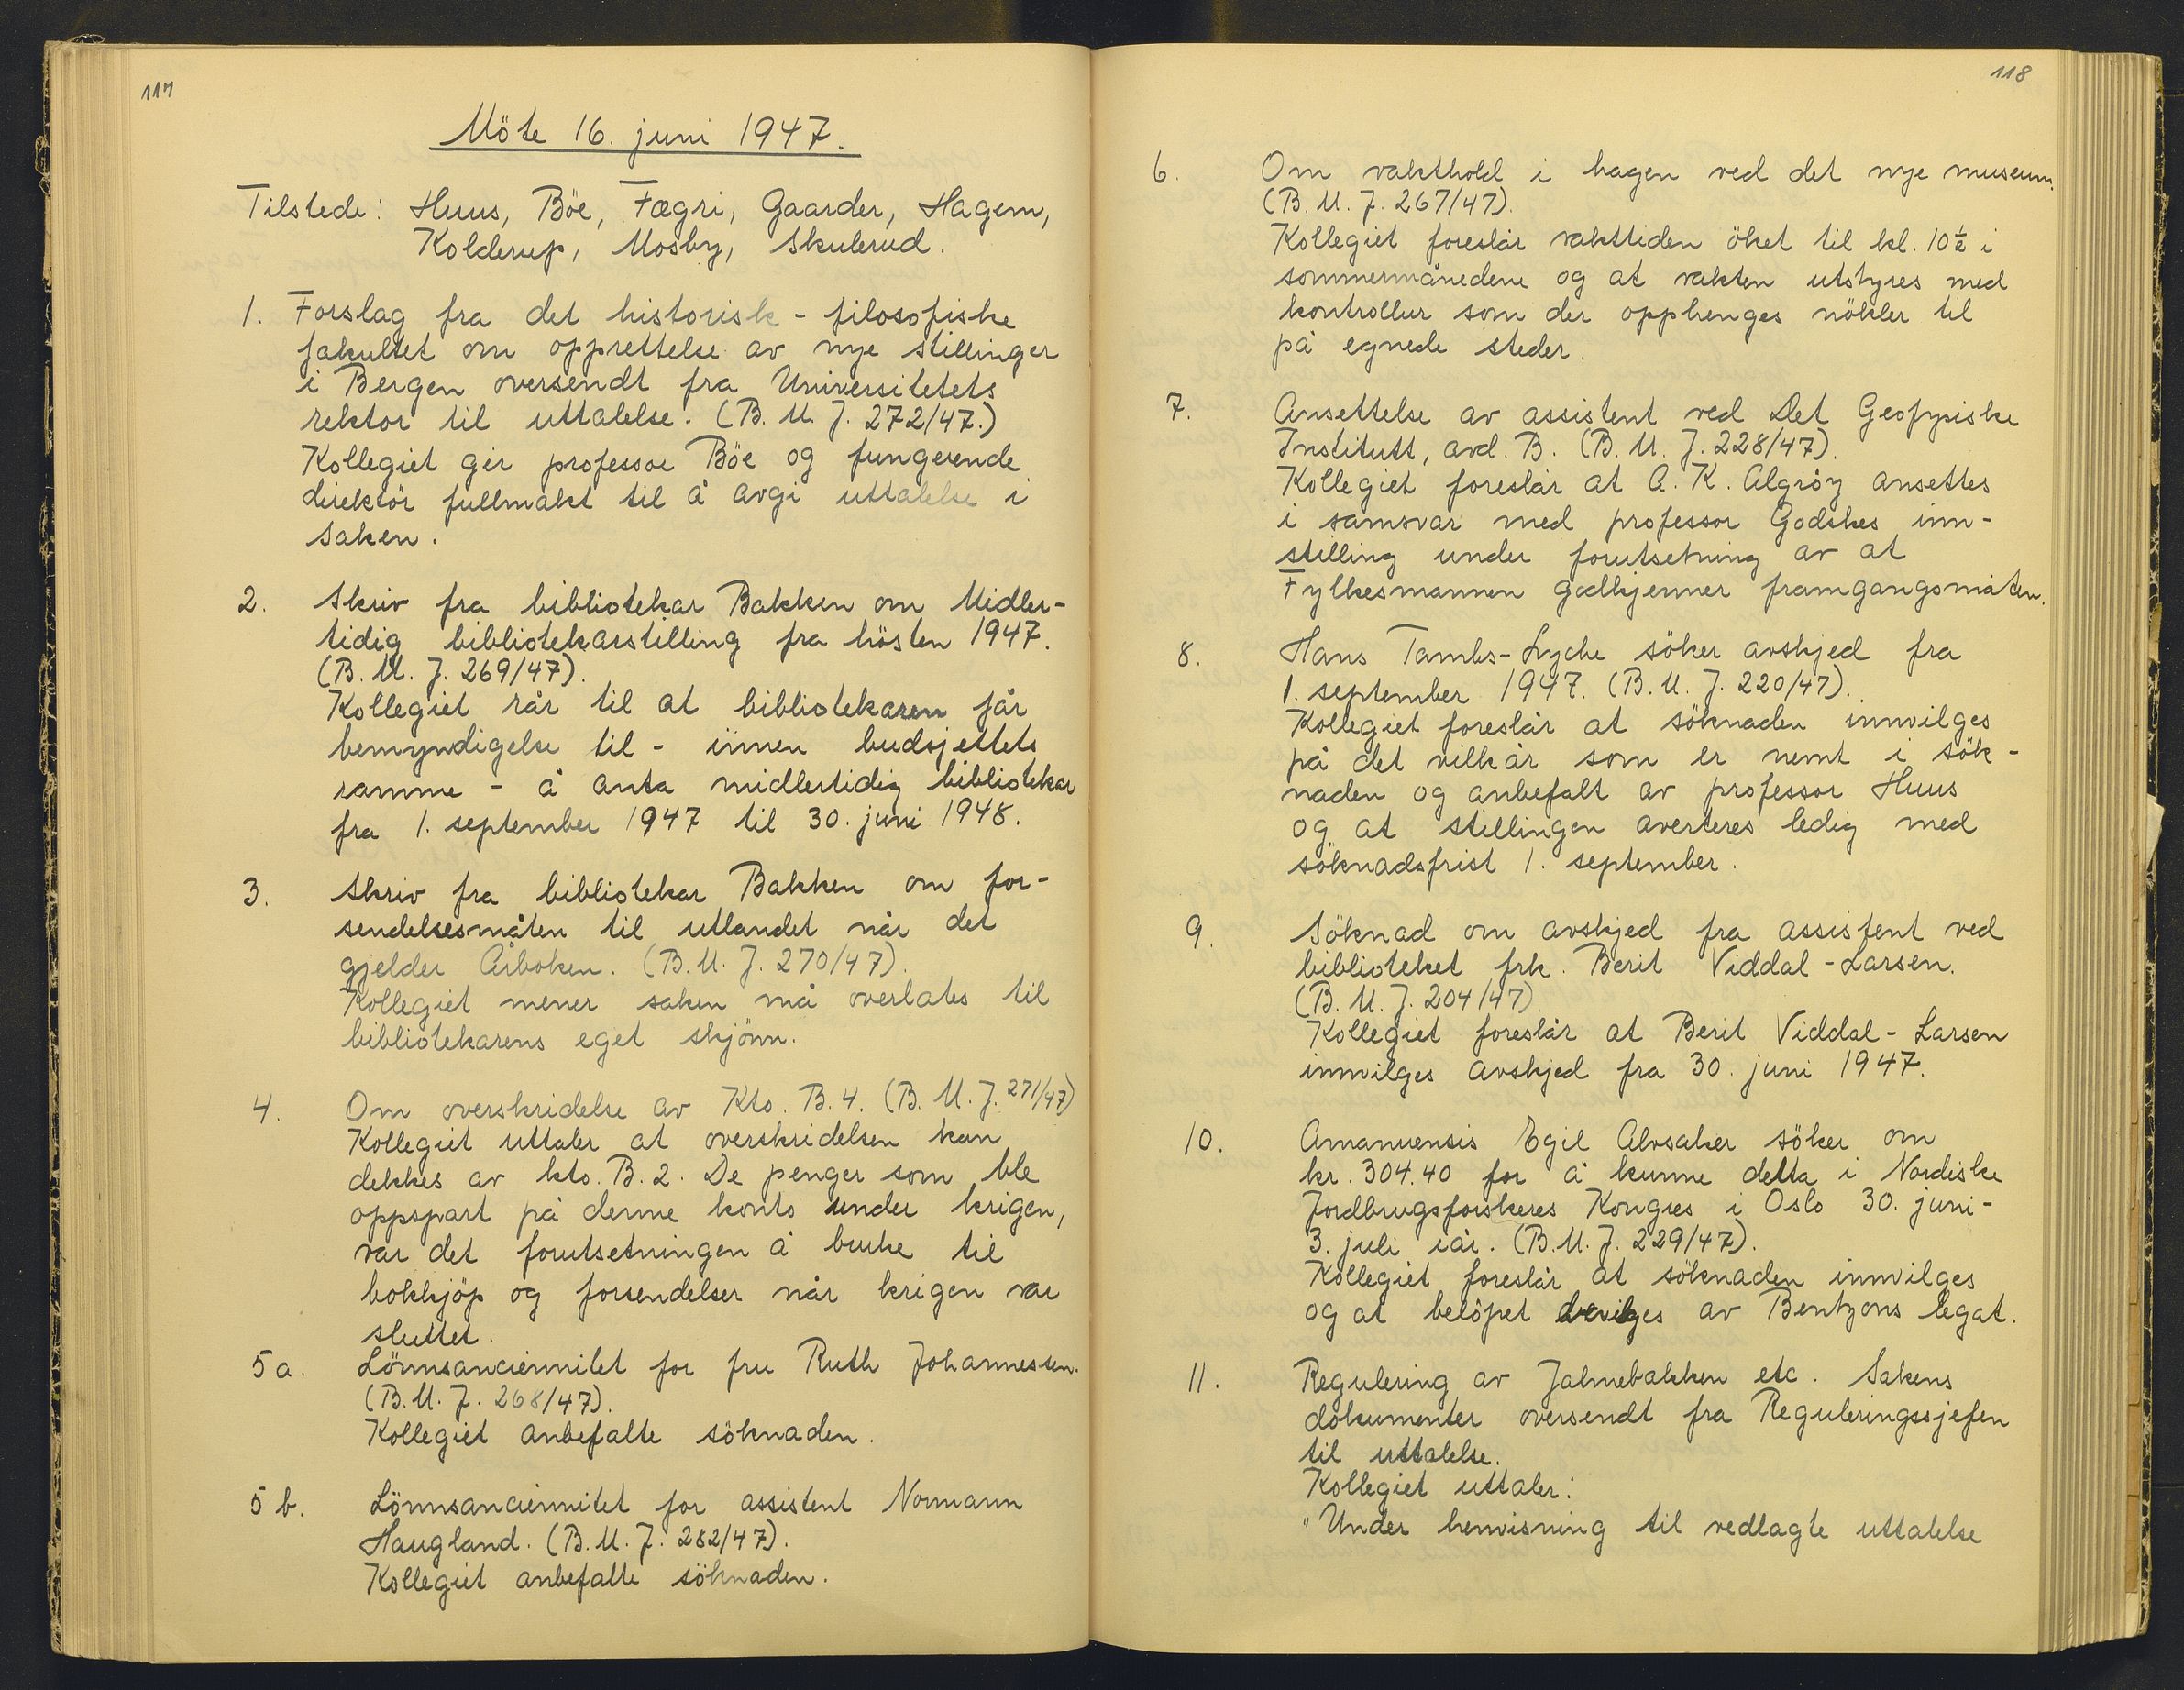 117
Möte 16. juni 1947.
Tilstede: Huus, Böe, Fægri, Gaarder, Hagem,
Kolderup, Mosby, Skulerud.
1. Forslag fra det historisk-filosofiske
fakultet om opprettelse av nye stillinger
i Bergen oversendt fra Universitetets
rektor til uttalelse. (B. U. J. 272/47.)
Kollegiet gir professor Böe og fungerende
direktör fullmakt til å avgi uttalelse i
saken.
2. Skriv fra bibliotekar Bakken om Midler-
tidig bibliotekarstilling fra hösten 1947.
(B. U. J. 269/47).
Kollegiet rår til at bibliotekaren får
bemyndigelse til - innen budsjettets
ramme - å anta midlertidig bibliotekar
fra 1. september 1947 til 30. juni 1948.
3. Skriv fra bibliotekar Bakken om for-
sendelsesmåten til utlandet når det
gjelder Årboken. (B. U. J. 270/47).
Kollegiet mener saken må overlates til
bibliotekarens eget skjönn.
4. Om overskridelse av Kto. B. 4. (B. U. J. 271/47)
Kollegiet uttaler at overskridelsen kan
dekkes av kto. B. 2. De penger som ble
oppspart på denne konto under krigen,
var det forutsetningen å bruke til
bokkjöp og forsendelser når krigen var
sluttet.
5a. Lönnsanciennitet for fru Ruth Johannessen.
(B. U. J. 268/47).
Kollegiet anbefalte söknaden.
5b. Lönnsanciennitet for assistent Normann
Haugland. (B. U. J. 282/47).
Kollegiet anbefalte söknaden.
118
6. Om vakthold i hagen ved det nye museum.
(B. U. J. 267/47).
Kollegiet foreslår vakttiden öket til kl. 10½ i
sommermånedene og at vakten utstyres med
kontrollur som der opphenges nökler til
på egnede steder.
7. Ansettelse av assistent ved Det Geofysiske
Institutt, avd. B. (B. U. J. 228/47).
Kollegiet foreslår at A. K. Algröy ansettes
i samsvar med professor Godskes inn-
stilling under forutsetning av at
Fylkesmannen godkjenner framgangsmåten.
8. Hans Tambs-Lyche söker avskjed fra
1. september 1947. (B. U. J. 220/47).
Kollegiet foreslår at söknaden innvilges
på det vilkår som er nemt i sök-
naden og anbefalt av professor Huus
og at stillingen averteres ledig med
söknadsfrist 1. september.
9. Söknad om avskjed fra assistent ved
biblioteket frk. Berit Viddal-Larsen.
(B. U. J. 204/47)
Kollegiet foreslår at Berit Viddal-Larsen
innvilges avskjed fra 30. juni 1947.
10. Amanuensis Egil Alvsaker söker om
kr. 304.40 for å kunne delta i Nordiske
Jordbrugsforskeres Kongres i Oslo 30. juni-
3. juli iår. (B. U. J. 229/47).
Kollegiet foreslår at söknaden innvilges
og at belöpet bevilges av Bentzons legat.
11. Regulering av Jahnebakken etc. Sakens
dokumenter oversendt fra Reguleringssjefen
til uttalelse.
Kollegiet uttaler:
"Under henvisning til vedlagte uttalelse